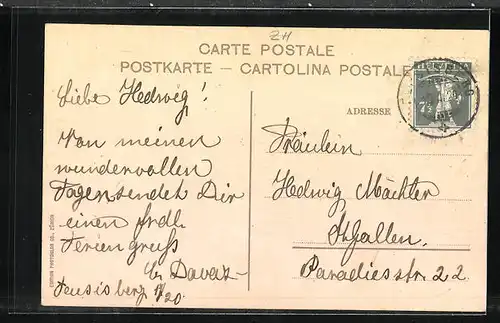 ZH
CARTE POSTALE
POSTKARTE — CARTOLINA POSTALE
HELVETIA
7½
ADRESSE
Liebe Hedwig!
Von meinen
wundervollen
Tagen sendet Dir
einen frdl.
Feriengruß
Fräulein
Hedwig Mächler
St. Gallen.
Paradiesstr. 22
EDITION PHOTOGLOB CO. ZÜRICH